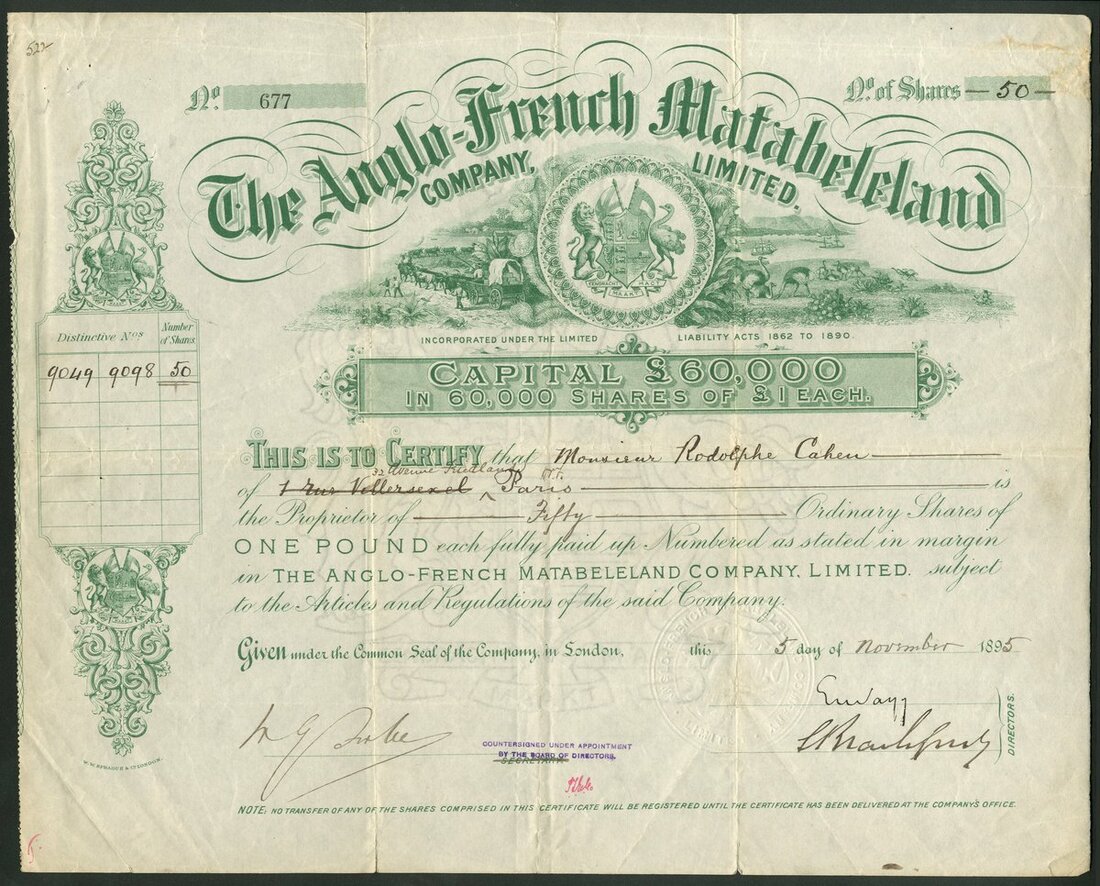 522
No. 677
No. of Shares — 50 —
The Anglo-French Matabeleland
COMPANY, LIMITED.
INCORPORATED UNDER THE LIMITED LIABILITY ACTS 1862 TO 1890.
CAPITAL £60,000
IN 60,000 SHARES OF £1 EACH.
Distinctive Nos Number of Shares
9049 9098 50
THIS IS TO CERTIFY that Monsieur Rodolphe Cahen
32 Avenue Friedland
of 1 rue Villersexel Paris is
the Proprietor of Fifty Ordinary Shares of
ONE POUND each fully paid up Numbered as stated in margin
in THE ANGLO-FRENCH MATABELELAND COMPANY, LIMITED. subject
to the Articles and Regulations of the said Company.
Given under the Common Seal of the Company, in London, this 5 day of November 1895
DIRECTORS.
COUNTERSIGNED UNDER APPOINTMENT
BY THE BOARD OF DIRECTORS.
SECRETARY
W. W. SPRAGUE & CO LONDON.
NOTE: NO TRANSFER OF ANY OF THE SHARES COMPRISED IN THIS CERTIFICATE WILL BE REGISTERED UNTIL THE CERTIFICATE HAS BEEN DELIVERED AT THE COMPANY'S OFFICE.